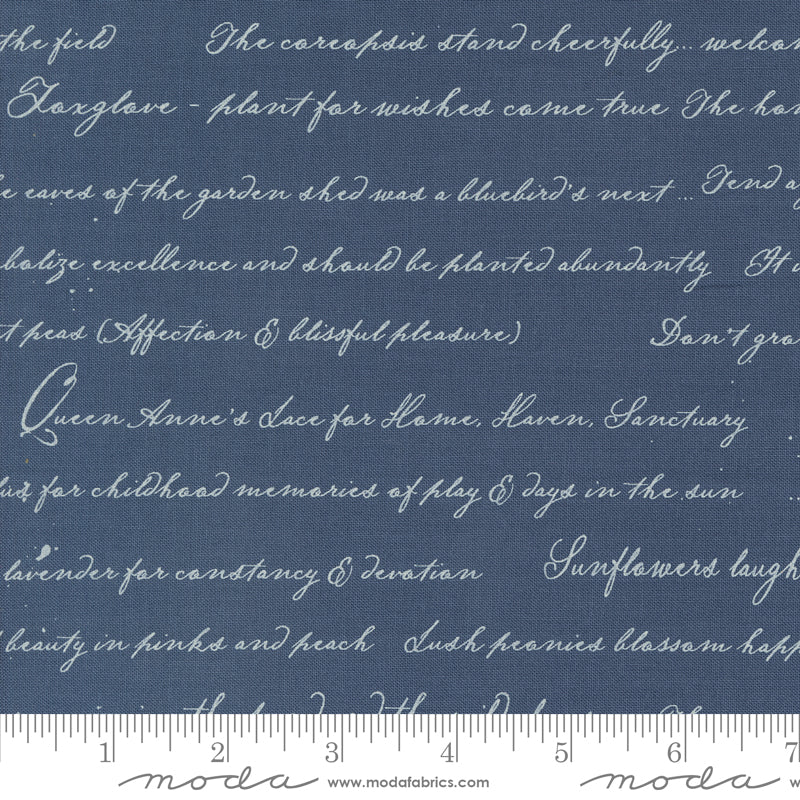 the field The coreopsis stand cheerfully... welcom
Foxglove - plant for wishes come true The hon
e eaves of the garden shed was a bluebird's next ... Tend a
bolize excellence and should be planted abundantly It
t peas (Affection & blissful pleasure) Don't gro
Queen Anne's Lace for Home, Haven, Sanctuary
for childhood memories of play & days in the sun
lavender for constancy & devotion Sunflowers laugh
beauty in pinks and peach Lush peonies blossom happ
1 2 3 4 5 6 7
moda www.modafabrics.com moda w